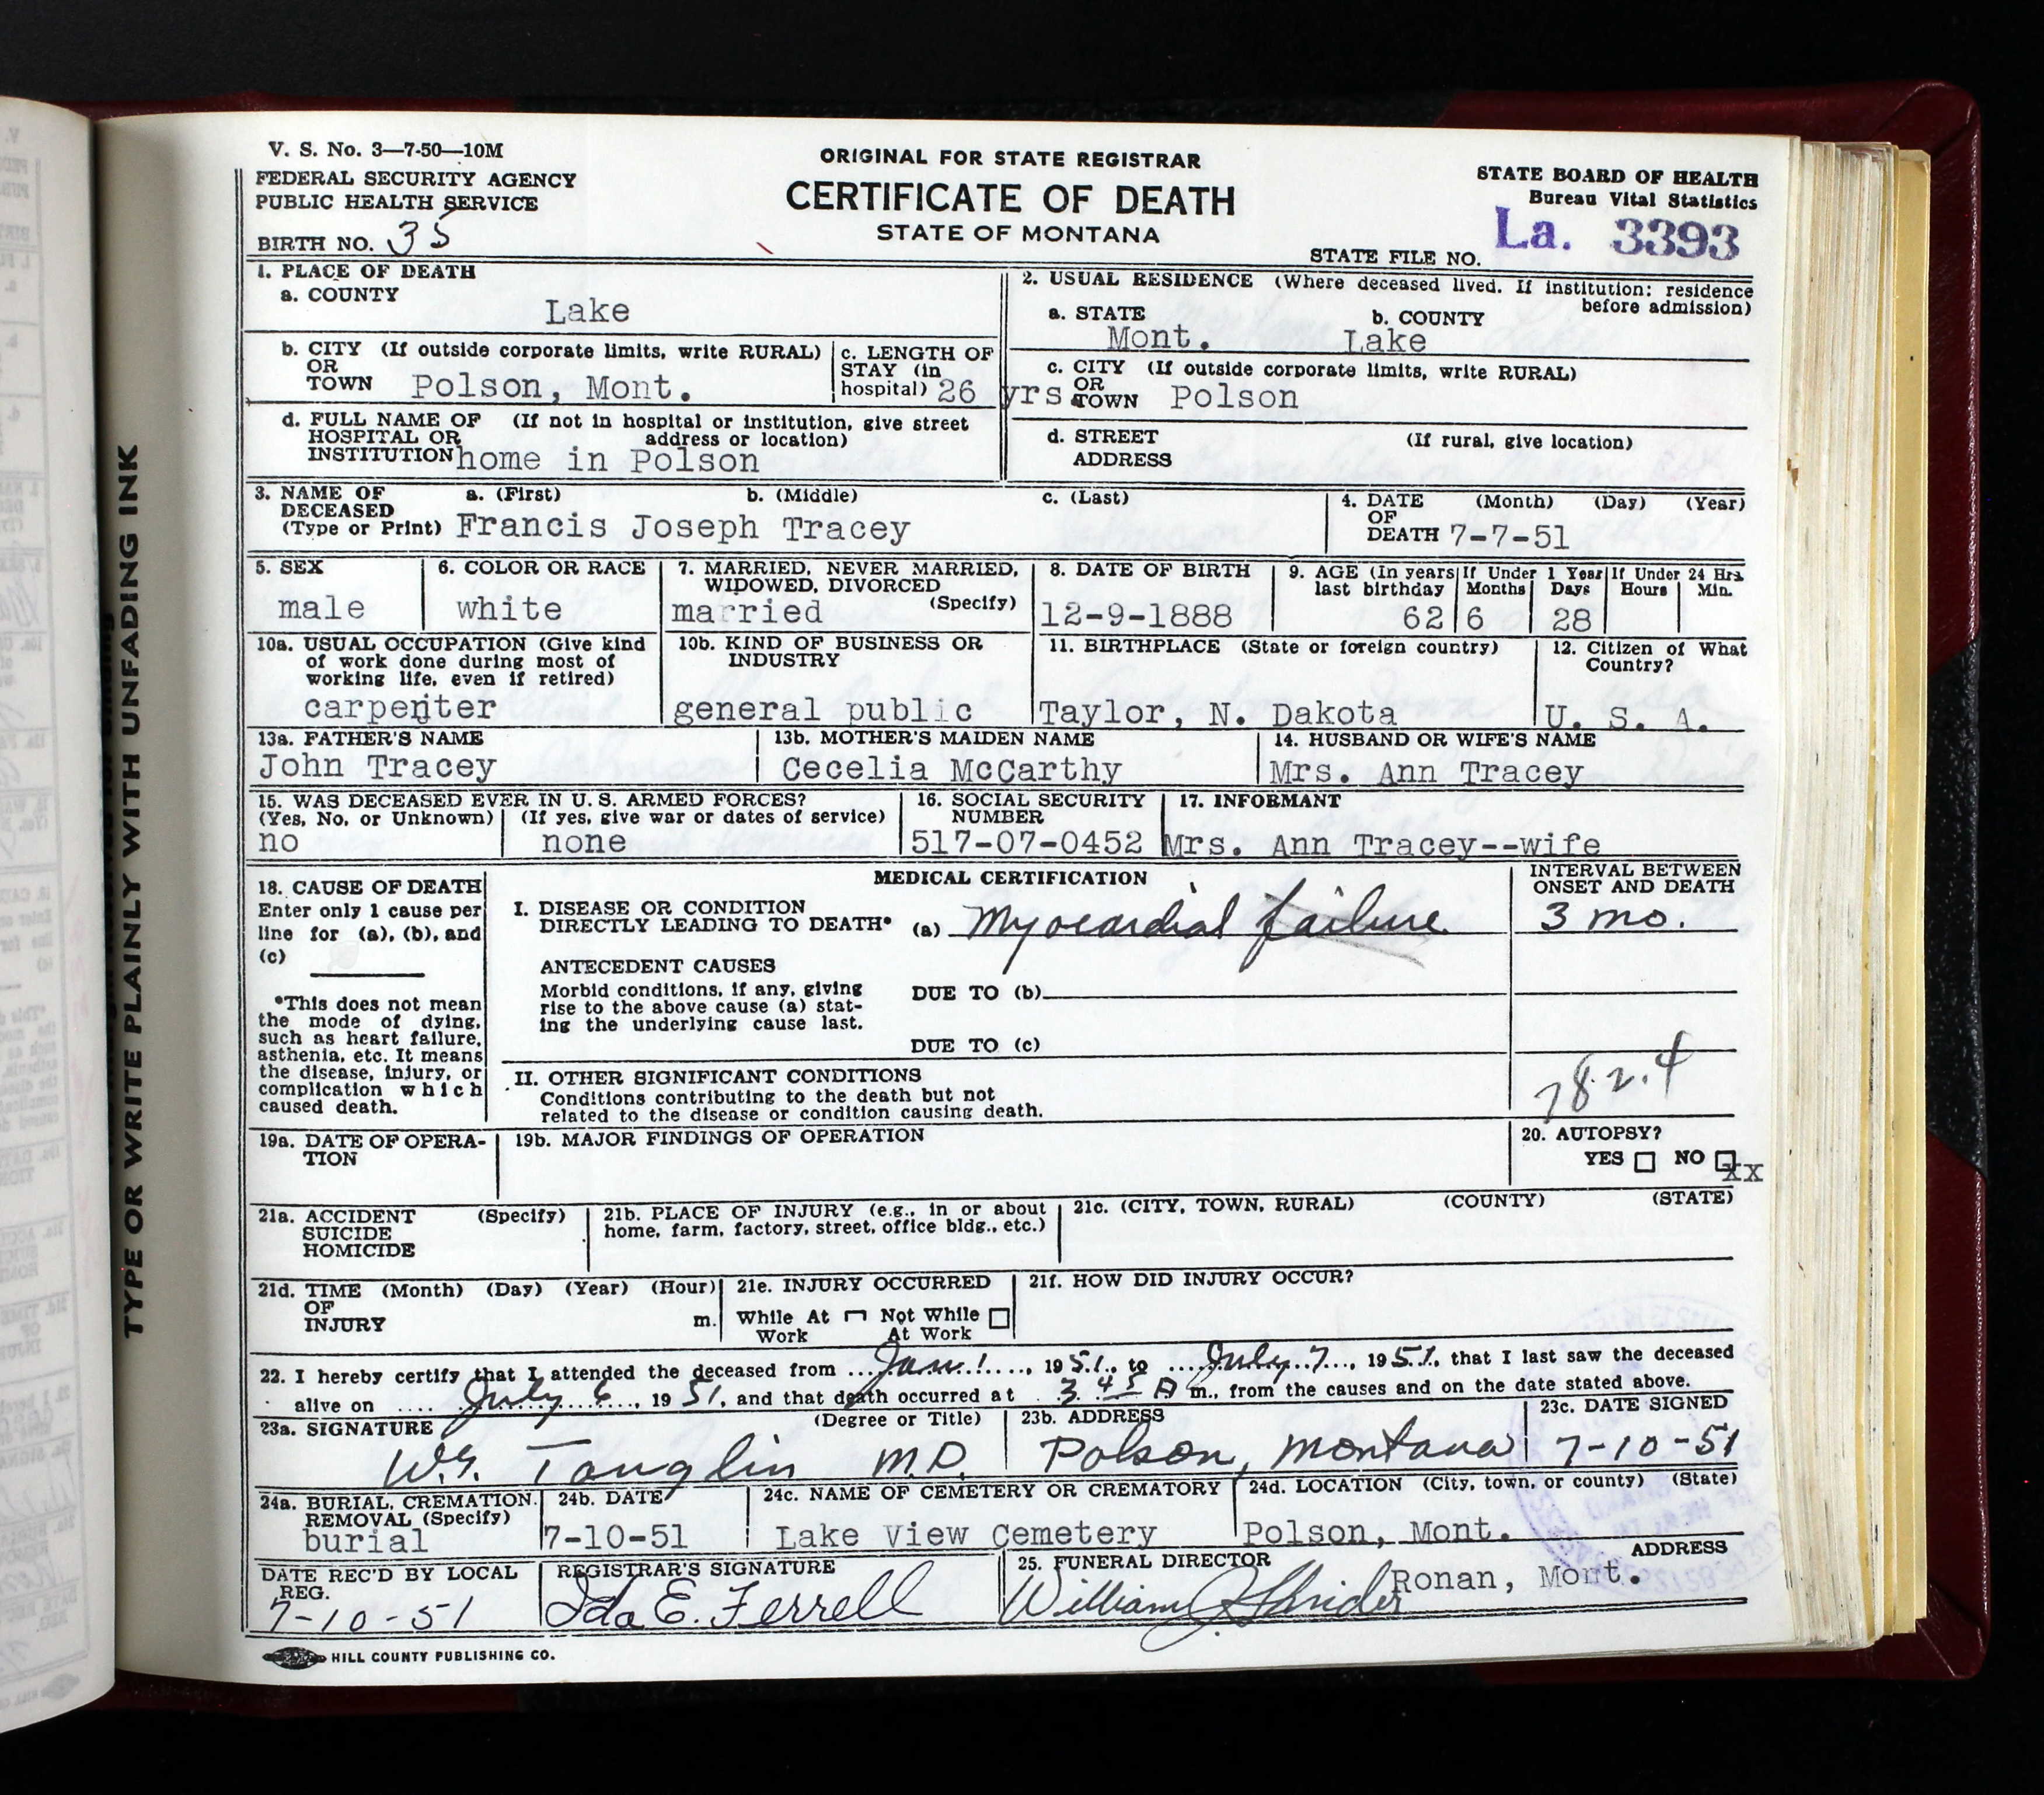 V. S. No. 3—7-50—10M
ORIGINAL FOR STATE REGISTRAR
FEDERAL SECURITY AGENCY
PUBLIC HEALTH SERVICE
CERTIFICATE OF DEATH
STATE OF MONTANA
STATE BOARD OF HEALTH
Bureau Vital Statistics
BIRTH NO. 35
STATE FILE NO. La. 3393
TYPE OR WRITE PLAINLY WITH UNFADING INK
1. PLACE OF DEATH
a. COUNTY
Lake
2. USUAL RESIDENCE (Where deceased lived. If institution: residence
before admission)
a. STATE b. COUNTY
Mont. Lake
b. CITY (If outside corporate limits, write RURAL)
OR
TOWN Polson, Mont.
c. LENGTH OF
STAY (in
hospital) 26 yrs
c. CITY (If outside corporate limits, write RURAL)
OR
TOWN Polson
d. FULL NAME OF (If not in hospital or institution, give street
HOSPITAL OR address or location)
INSTITUTION home in Polson
d. STREET (If rural, give location)
ADDRESS
3. NAME OF a. (First) b. (Middle) c. (Last)
DECEASED
(Type or Print) Francis Joseph Tracey
4. DATE (Month) (Day) (Year)
OF
DEATH 7-7-51
5. SEX
male
6. COLOR OR RACE
white
7. MARRIED, NEVER MARRIED,
WIDOWED, DIVORCED
married (Specify)
8. DATE OF BIRTH
12-9-1888
9. AGE (In years
last birthday
62
If Under 1 Year
Months Days
6 28
If Under 24 Hrs
Hours Min.
10a. USUAL OCCUPATION (Give kind
of work done during most of
working life, even if retired)
carpenter
10b. KIND OF BUSINESS OR
INDUSTRY
general public
11. BIRTHPLACE (State or foreign country)
Taylor, N. Dakota
12. Citizen of What
Country?
U. S. A.
13a. FATHER'S NAME
John Tracey
13b. MOTHER'S MAIDEN NAME
Cecelia McCarthy
14. HUSBAND OR WIFE'S NAME
Mrs. Ann Tracey
15. WAS DECEASED EVER IN U. S. ARMED FORCES?
(Yes, No, or Unknown) (If yes, give war or dates of service)
no none
16. SOCIAL SECURITY
NUMBER
517-07-0452
17. INFORMANT
Mrs. Ann Tracey--wife
18. CAUSE OF DEATH
Enter only 1 cause per
line for (a), (b), and
(c)
*This does not mean
the mode of dying,
such as heart failure,
asthenia, etc. It means
the disease, injury, or
complication which
caused death.
MEDICAL CERTIFICATION
INTERVAL BETWEEN
ONSET AND DEATH
I. DISEASE OR CONDITION
DIRECTLY LEADING TO DEATH* (a) Myocardial failure 3 mo.
ANTECEDENT CAUSES
Morbid conditions, if any, giving
rise to the above cause (a) stat-
ing the underlying cause last.
DUE TO (b)
DUE TO (c)
782.4
II. OTHER SIGNIFICANT CONDITIONS
Conditions contributing to the death but not
related to the disease or condition causing death.
19a. DATE OF OPERA-
TION
19b. MAJOR FINDINGS OF OPERATION
20. AUTOPSY?
YES NO xx
21a. ACCIDENT (Specify)
SUICIDE
HOMICIDE
21b. PLACE OF INJURY (e.g., in or about
home, farm, factory, street, office bldg., etc.)
21c. (CITY, TOWN, RURAL) (COUNTY) (STATE)
21d. TIME (Month) (Day) (Year) (Hour)
OF
INJURY m.
21e. INJURY OCCURRED
While At Not While
Work At Work
21f. HOW DID INJURY OCCUR?
22. I hereby certify that I attended the deceased from Jan. 1, 1951, to July 7, 1951, that I last saw the deceased
alive on July 6, 1951, and that death occurred at 3 45 A m., from the causes and on the date stated above.
23a. SIGNATURE (Degree or Title)
W.G. Tanglin M.D.
23b. ADDRESS
Polson, Montana
23c. DATE SIGNED
7-10-51
24a. BURIAL, CREMATION,
REMOVAL (Specify)
burial
24b. DATE
7-10-51
24c. NAME OF CEMETERY OR CREMATORY
Lake View Cemetery
24d. LOCATION (City, town, or county) (State)
Polson, Mont.
DATE REC'D BY LOCAL
REG.
7-10-51
REGISTRAR'S SIGNATURE
Ida E. Ferrell
25. FUNERAL DIRECTOR ADDRESS
William J. Shrider Ronan, Mont.
HILL COUNTY PUBLISHING CO.